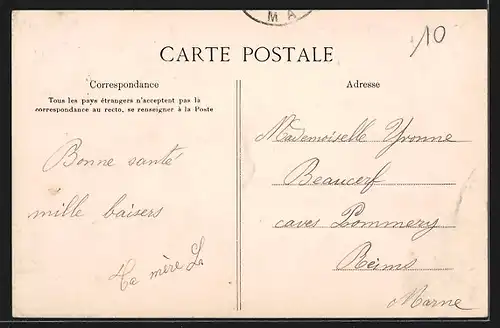 M A
10
CARTE POSTALE
Correspondance
Tous les pays étrangers n'acceptent pas la
correspondance au recto, se renseigner à la Poste
Bonne santé
mille baisers
Ta mère L.
Adresse
Mademoiselle Yvonne
Beaucerf
caves Pommery
Reims
Marne